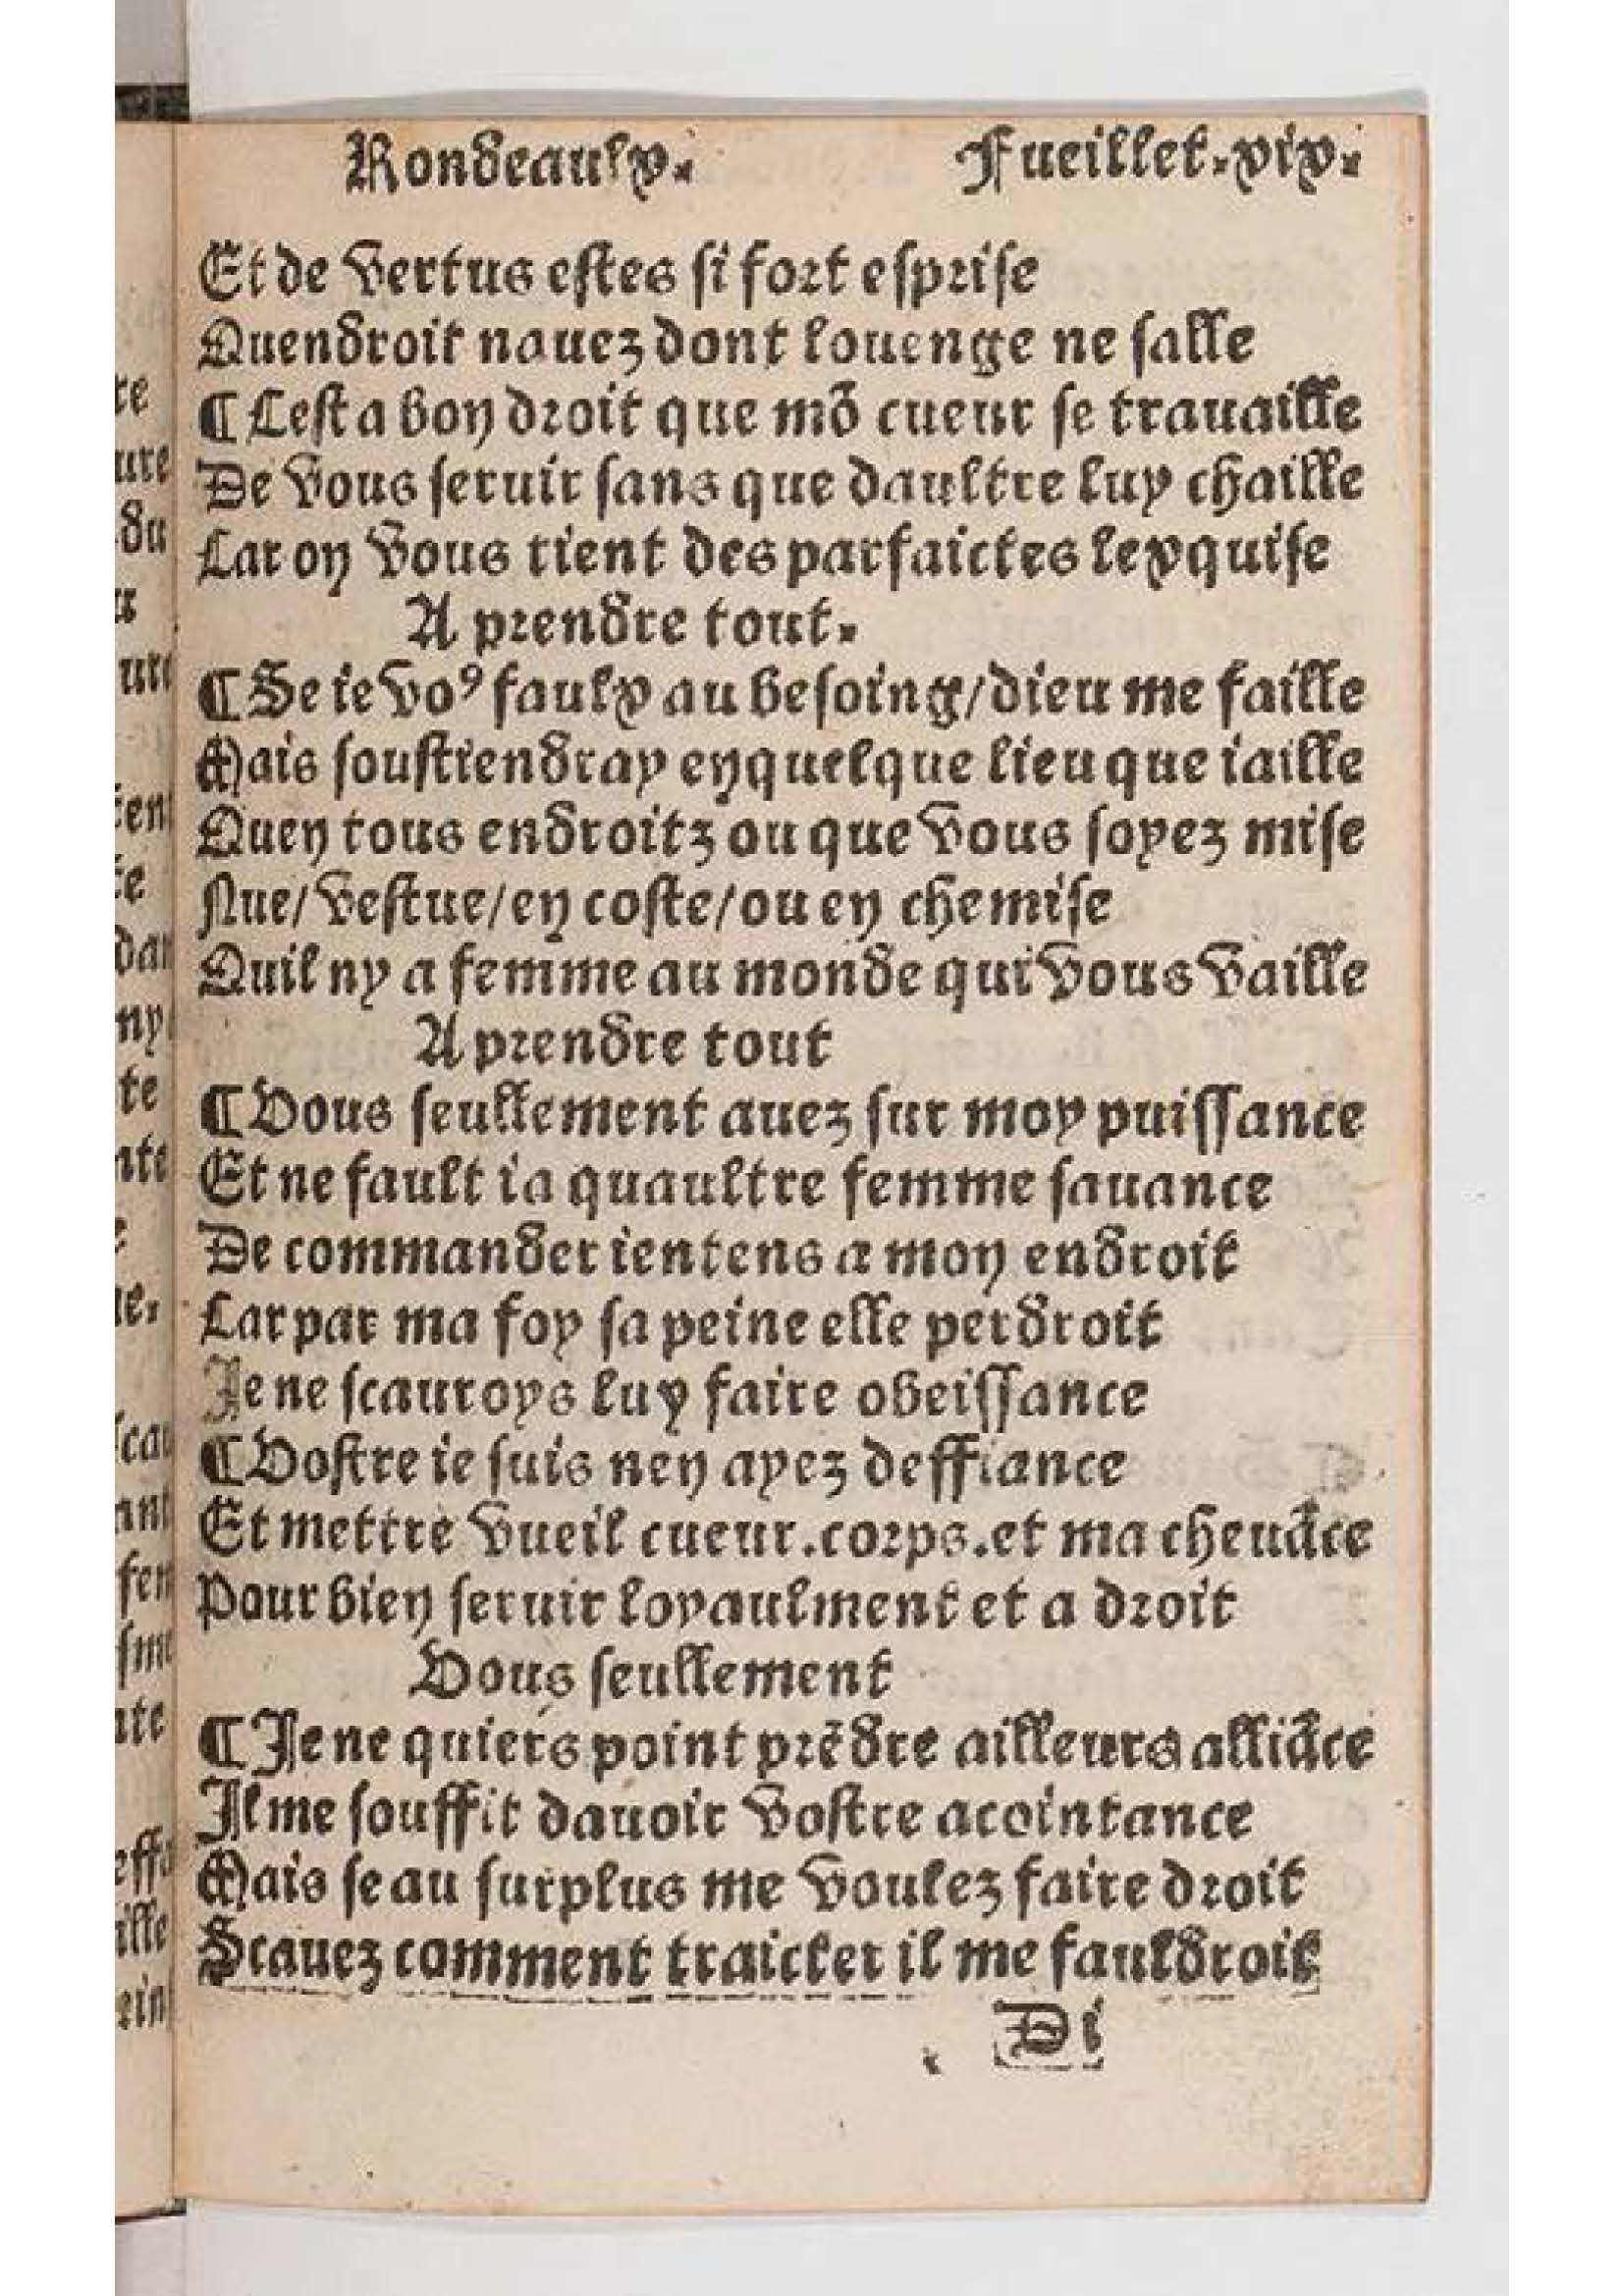 Rondeaulx. Fueillet.xix.
Et de vertus estes si fort esprise
Quendroit nauez dont louenge ne salle
¶ Cest a bon droit que mõ cueur se trauaille
De vous seruir sans que daultre luy chaille
Car on vous tient des parfaictes lexquise
A prendre tout.
¶ Se ie voꝰ faulx au besoing/dieu me faille
Mais soustiendray en quelque lieu que iaille
Quen tous endroitz ou que vous soyez mise
Nue/vestue/en coste/ou en chemise
Quil ny a femme au monde qui vous vaille
A prendre tout
¶ Vous seullement auez sur moy puissance
Et ne fault ia quaultre femme sauance
De commander ientens a mon endroit
Car par ma foy sa peine elle perdroit
Je ne scauroys luy faire obeissance
¶ Vostre ie suis nen ayez deffiance
Et mettre vueil cueur.corps.et ma cheuãce
Pour bien seruir loyaulment et a droit
Vous seullement
¶ Je ne quiers point prẽdre ailleurs alliãce
Il me souffit dauoir vostre acointance
Mais se au surplus me voulez faire droit
Scauez comment traicter il me fauldroit
Di